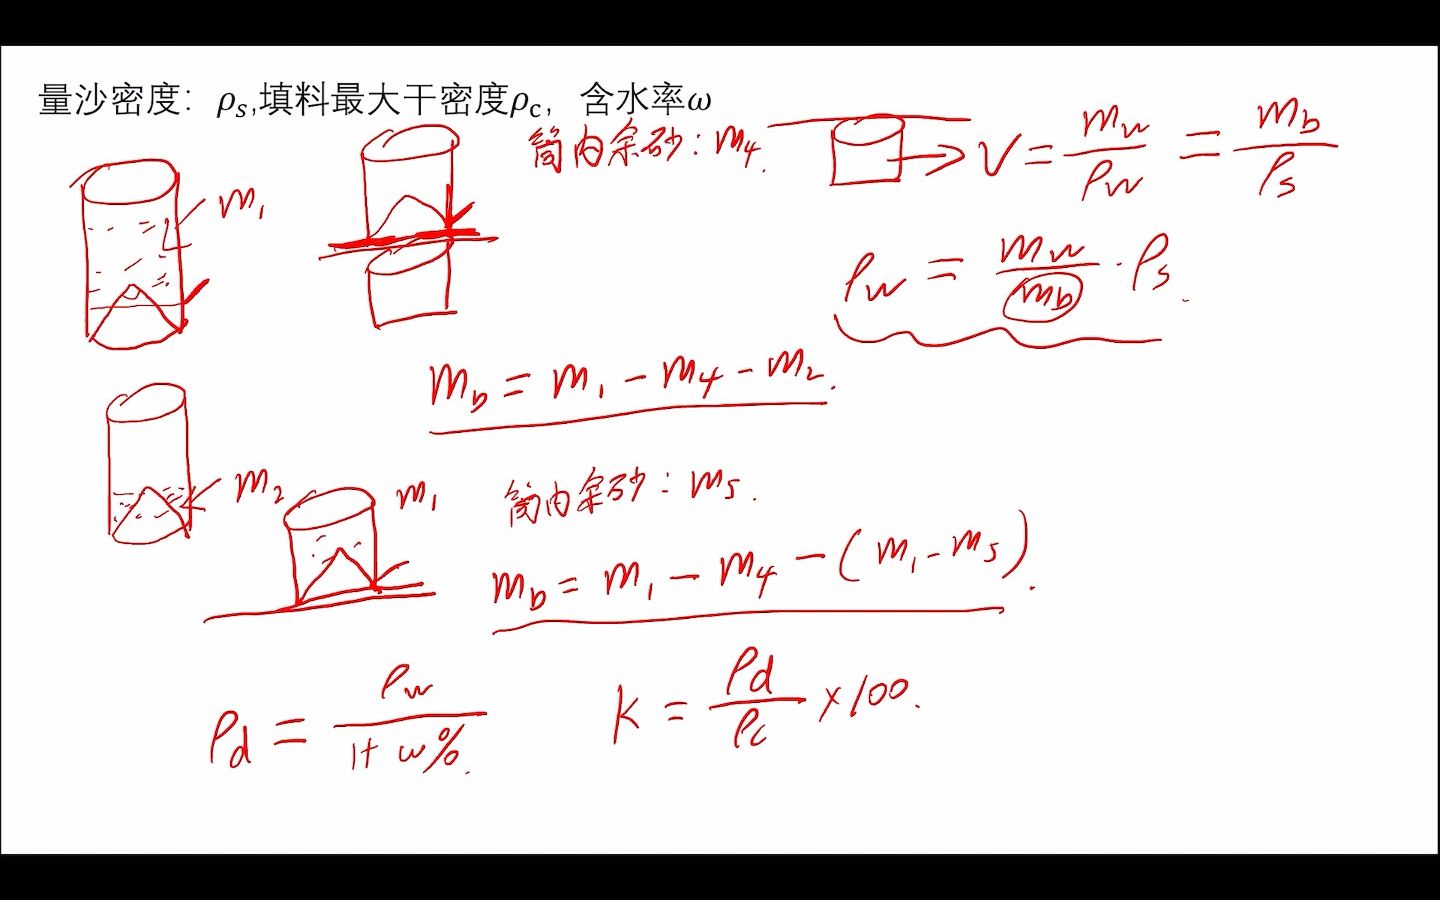 量沙密度：ρₛ,填料最大干密度ρ_c，含水率ω
m₁
筒内余砂：m₄.
V = m_w/ρ_w = m_b/ρ_s
ρ_w = m_w/m_b · ρ_s.
m_b = m₁ - m₄ - m₂.
m₂
m₁
筒内余砂：m₅.
m_b = m₁ - m₄ - (m₁ - m₅).
ρ_d = ρ_w/(1+w%).
K = ρ_d/ρ_c ×100.